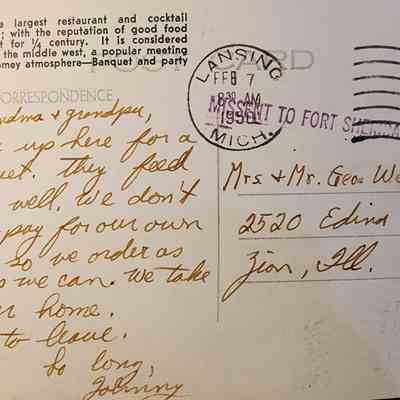 e largest restaurant and cocktail
; with the reputation of good food
t for ¼ century. It is considered
the middle west, a popular meeting
omey atmosphere—Banquet and party
POST CARD
CORRESPONDENCE
LANSING
FEB 7
8 30 AM
MICH.
MISSENT TO FORT SHERIDA
ndma + grandpa,
up here for a
uet. They feed
well. We don't
pay for our own
so we order as
s we can. We take
r home.
to leave.
So long,
Johnny
Mrs. + Mr. Geo. We
2520 Edina
Zion, Ill.